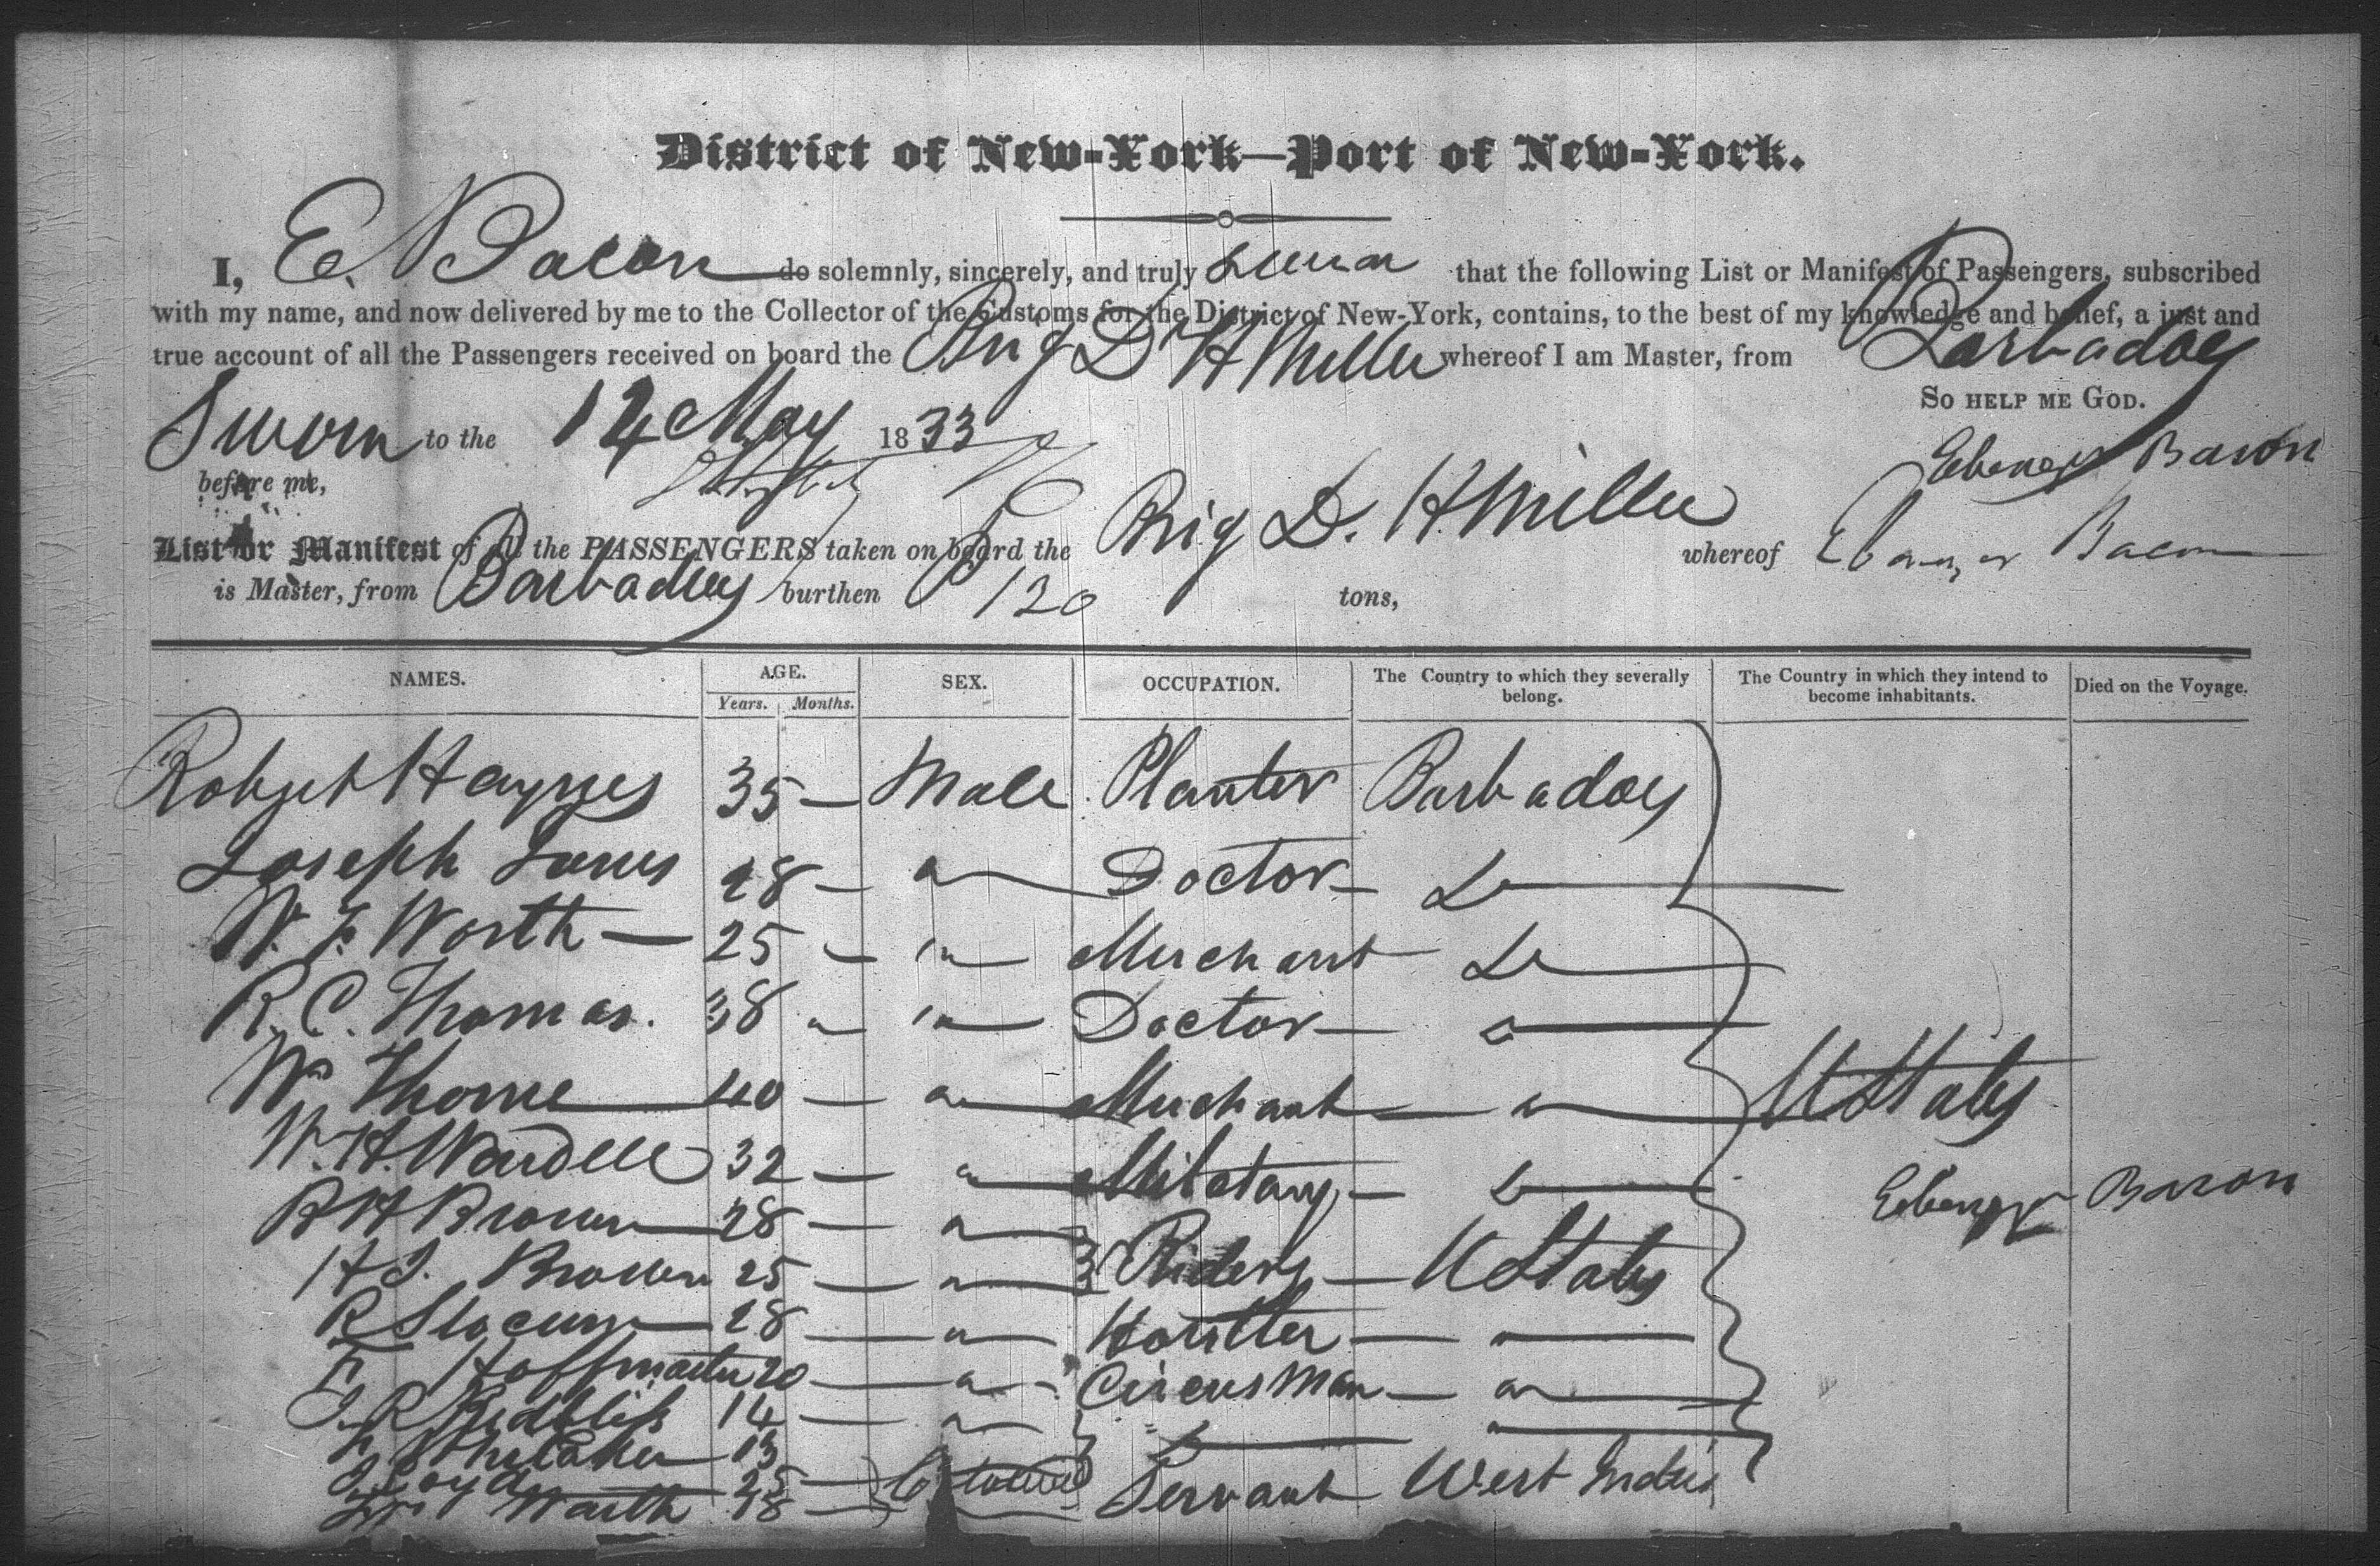 District of New-York—Port of New-York.
I, E. Bacon do solemnly, sincerely, and truly swear that the following List or Manifest of Passengers, subscribed
with my name, and now delivered by me to the Collector of the Customs for the District of New-York, contains, to the best of my knowledge and belief, a just and
true account of all the Passengers received on board the Brig D H Miller whereof I am Master, from Barbadoes
So help me God.
Sworn to the 14 May 1833
Ebenezer Bacon
before me,
List or Manifest of all the PASSENGERS taken on board the Brig D. H Miller whereof Ebenezer Bacon
is Master, from Barbadoes burthen 130 tons,
NAMES. AGE. Years. Months. SEX. OCCUPATION. The Country to which they severally belong. The Country in which they intend to become inhabitants. Died on the Voyage.
Robert Haynes 35 — Male Planter Barbadoes
Joseph Jones 28 — " Doctor — Do
W. Worth — 25 — " Merchant Do
R. C. Thomas. 38 " " Doctor — "
Wm Thorne 40 — " Merchant — " U States
W. H. Wardell 32 — " Militany — Do
B H Brown 28 — "
Ebenezer Bacon
H J. Brown 25 — " Riders — U States
R Slocum 28 — " Hostler — "
Hoffmaster 20 — " Circus Man — "
J. R 14 — " Do "
Whitaker 13
J. Loyd 25 — Coloured Servant West Indies
Worth 18 —